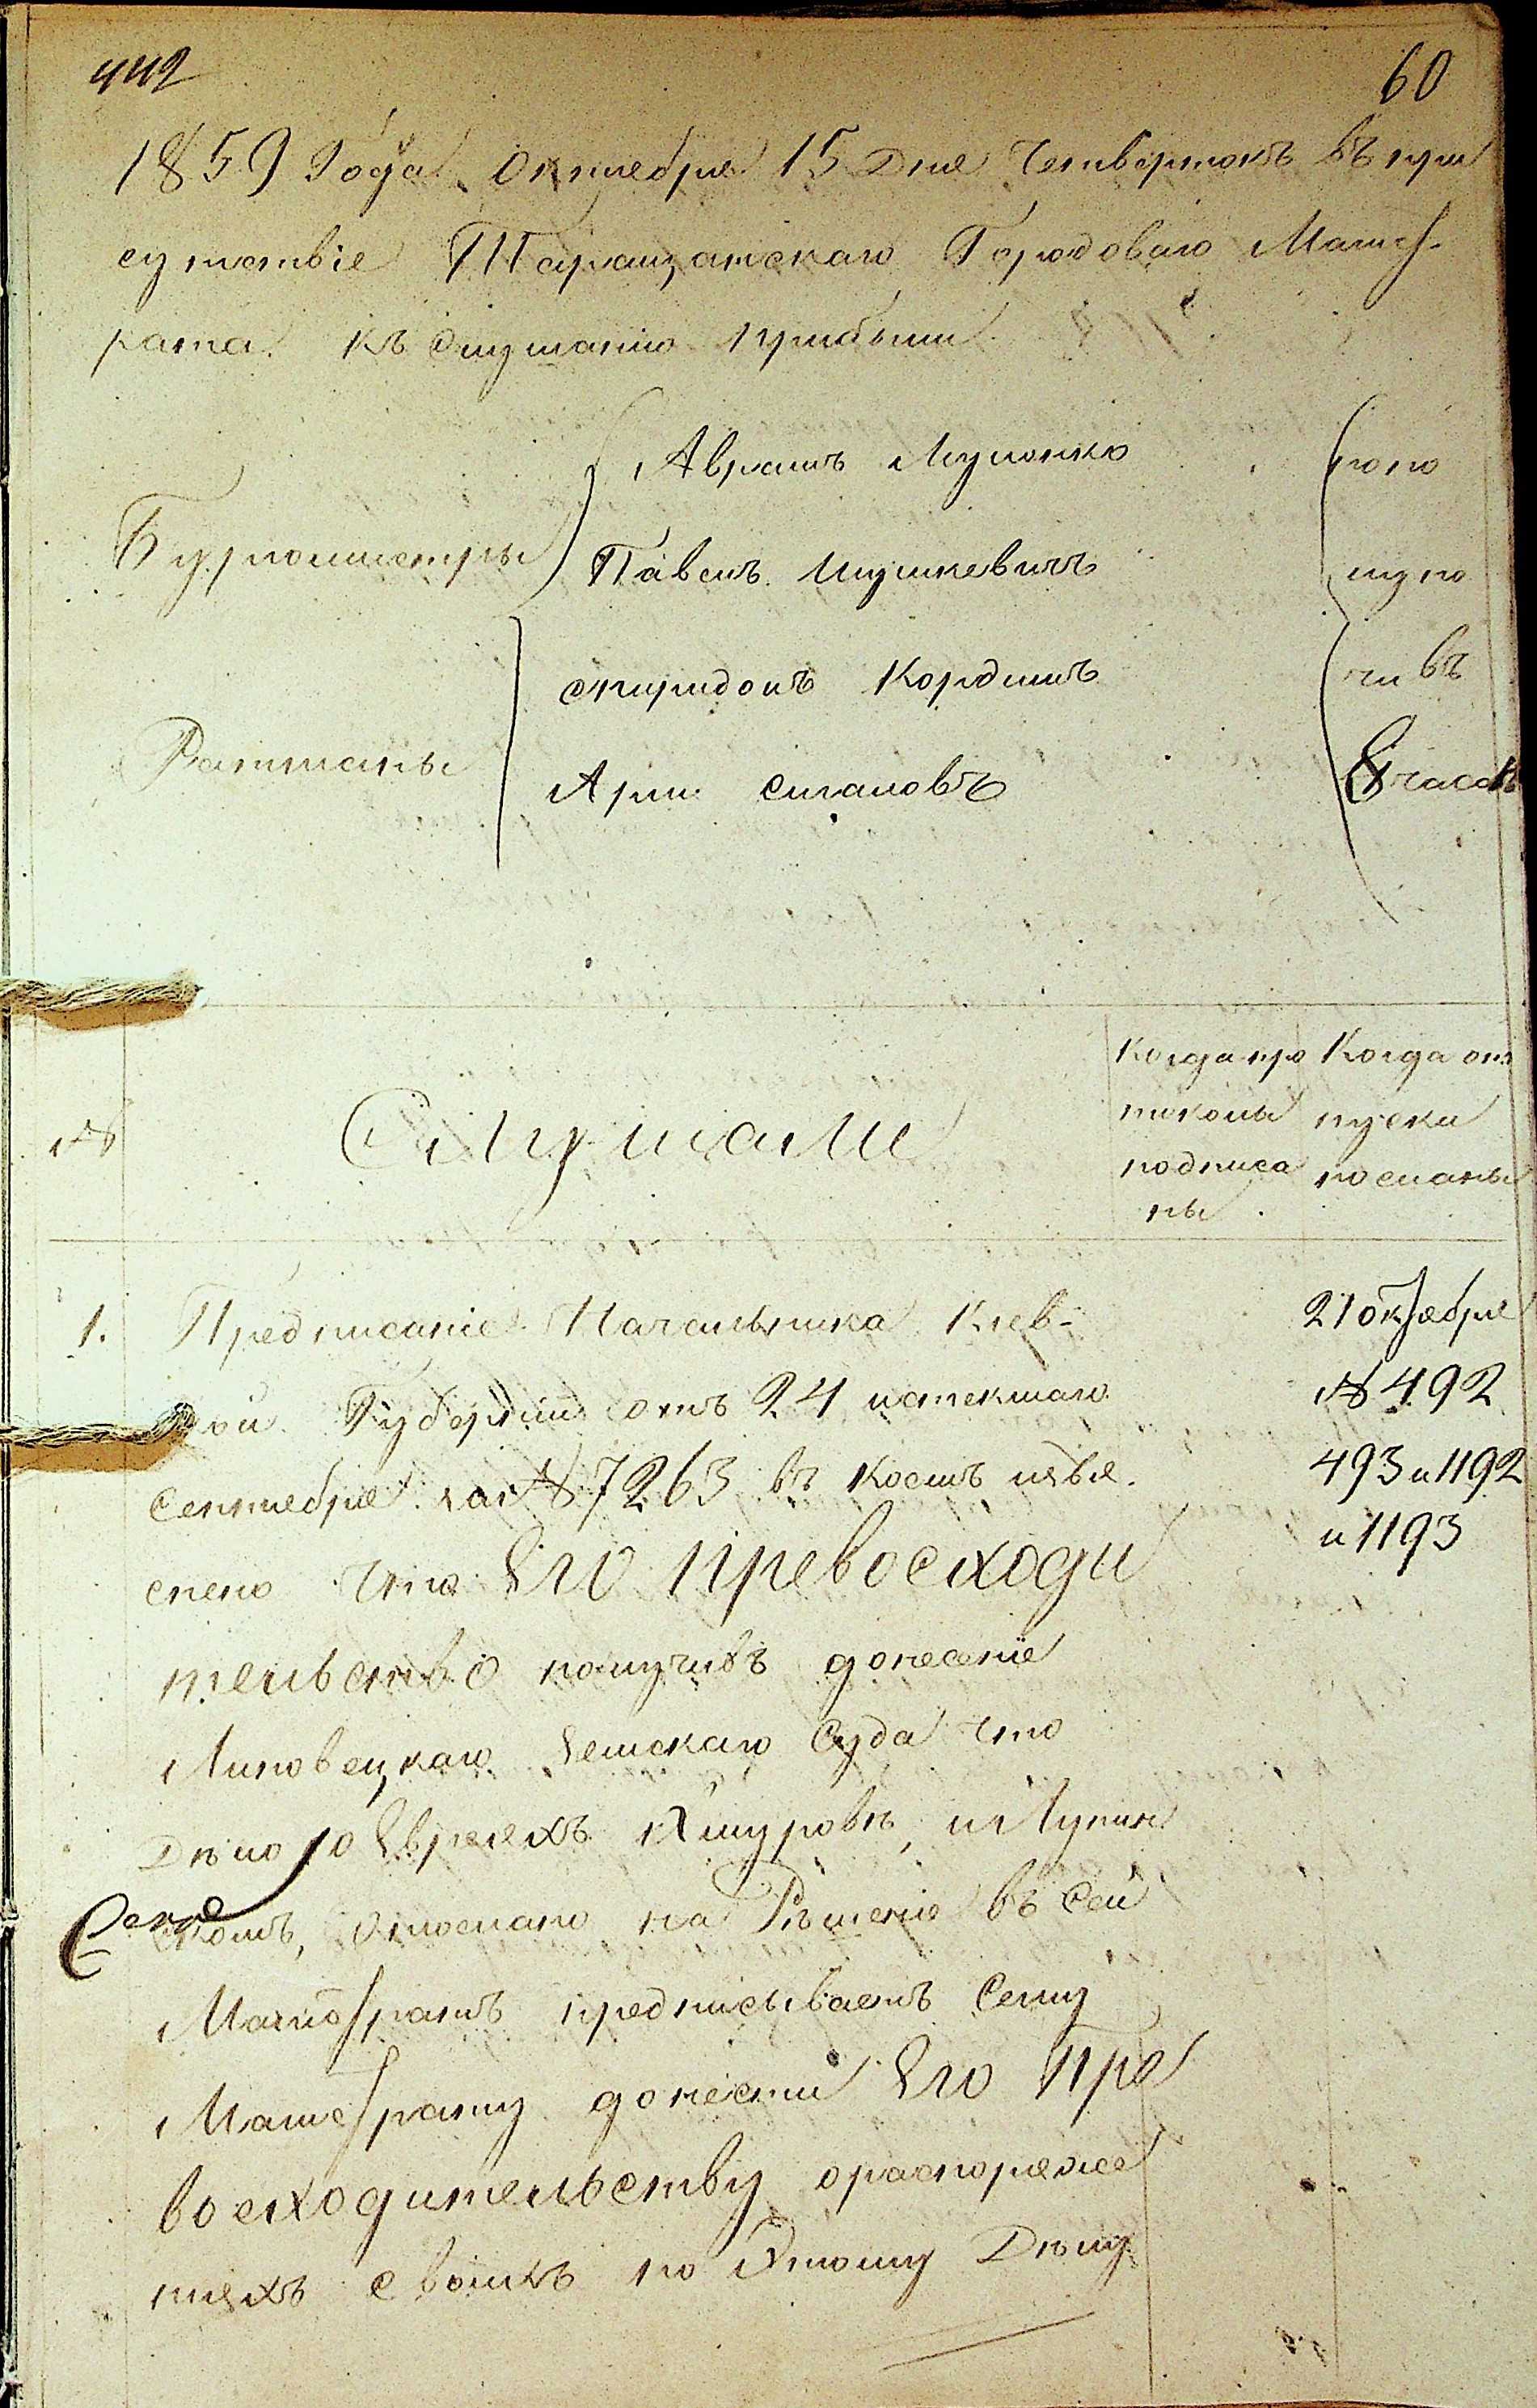 442
60
1859 Года Октября 15 Дня Четвертокъ въ при
сутствіе Таращанскаго Городоваго Магист-
рата къ слушанію прибыли
Бургомистры
Аврамъ
Павелъ Шушкевичъ
Ратманы
Спиридонъ Кордишъ
попо
лудно
чи въ
часовъ
№
Слушали
Когда про
токолы
подписа
ны
Когда от
пуски
посланы
1. Предписаніе Начальника Кіев-
ой Губерніи отъ 24 истекшаго
Сентября за № 7263 въ коемъ изъя.
снено что Его Превосходи
тельство получивъ донесеніе
Липовецкаго Земскаго Суда что
Дѣло о Евреяхъ и
отослано на Рѣшеніе въ сей
Магистратъ предписываетъ Сему
Магистрату донести Его Пре
восходительству о распоряже
ніяхъ своихъ по Этому Дѣлу
21 октября
№ 492
493 и 1192
и 1193